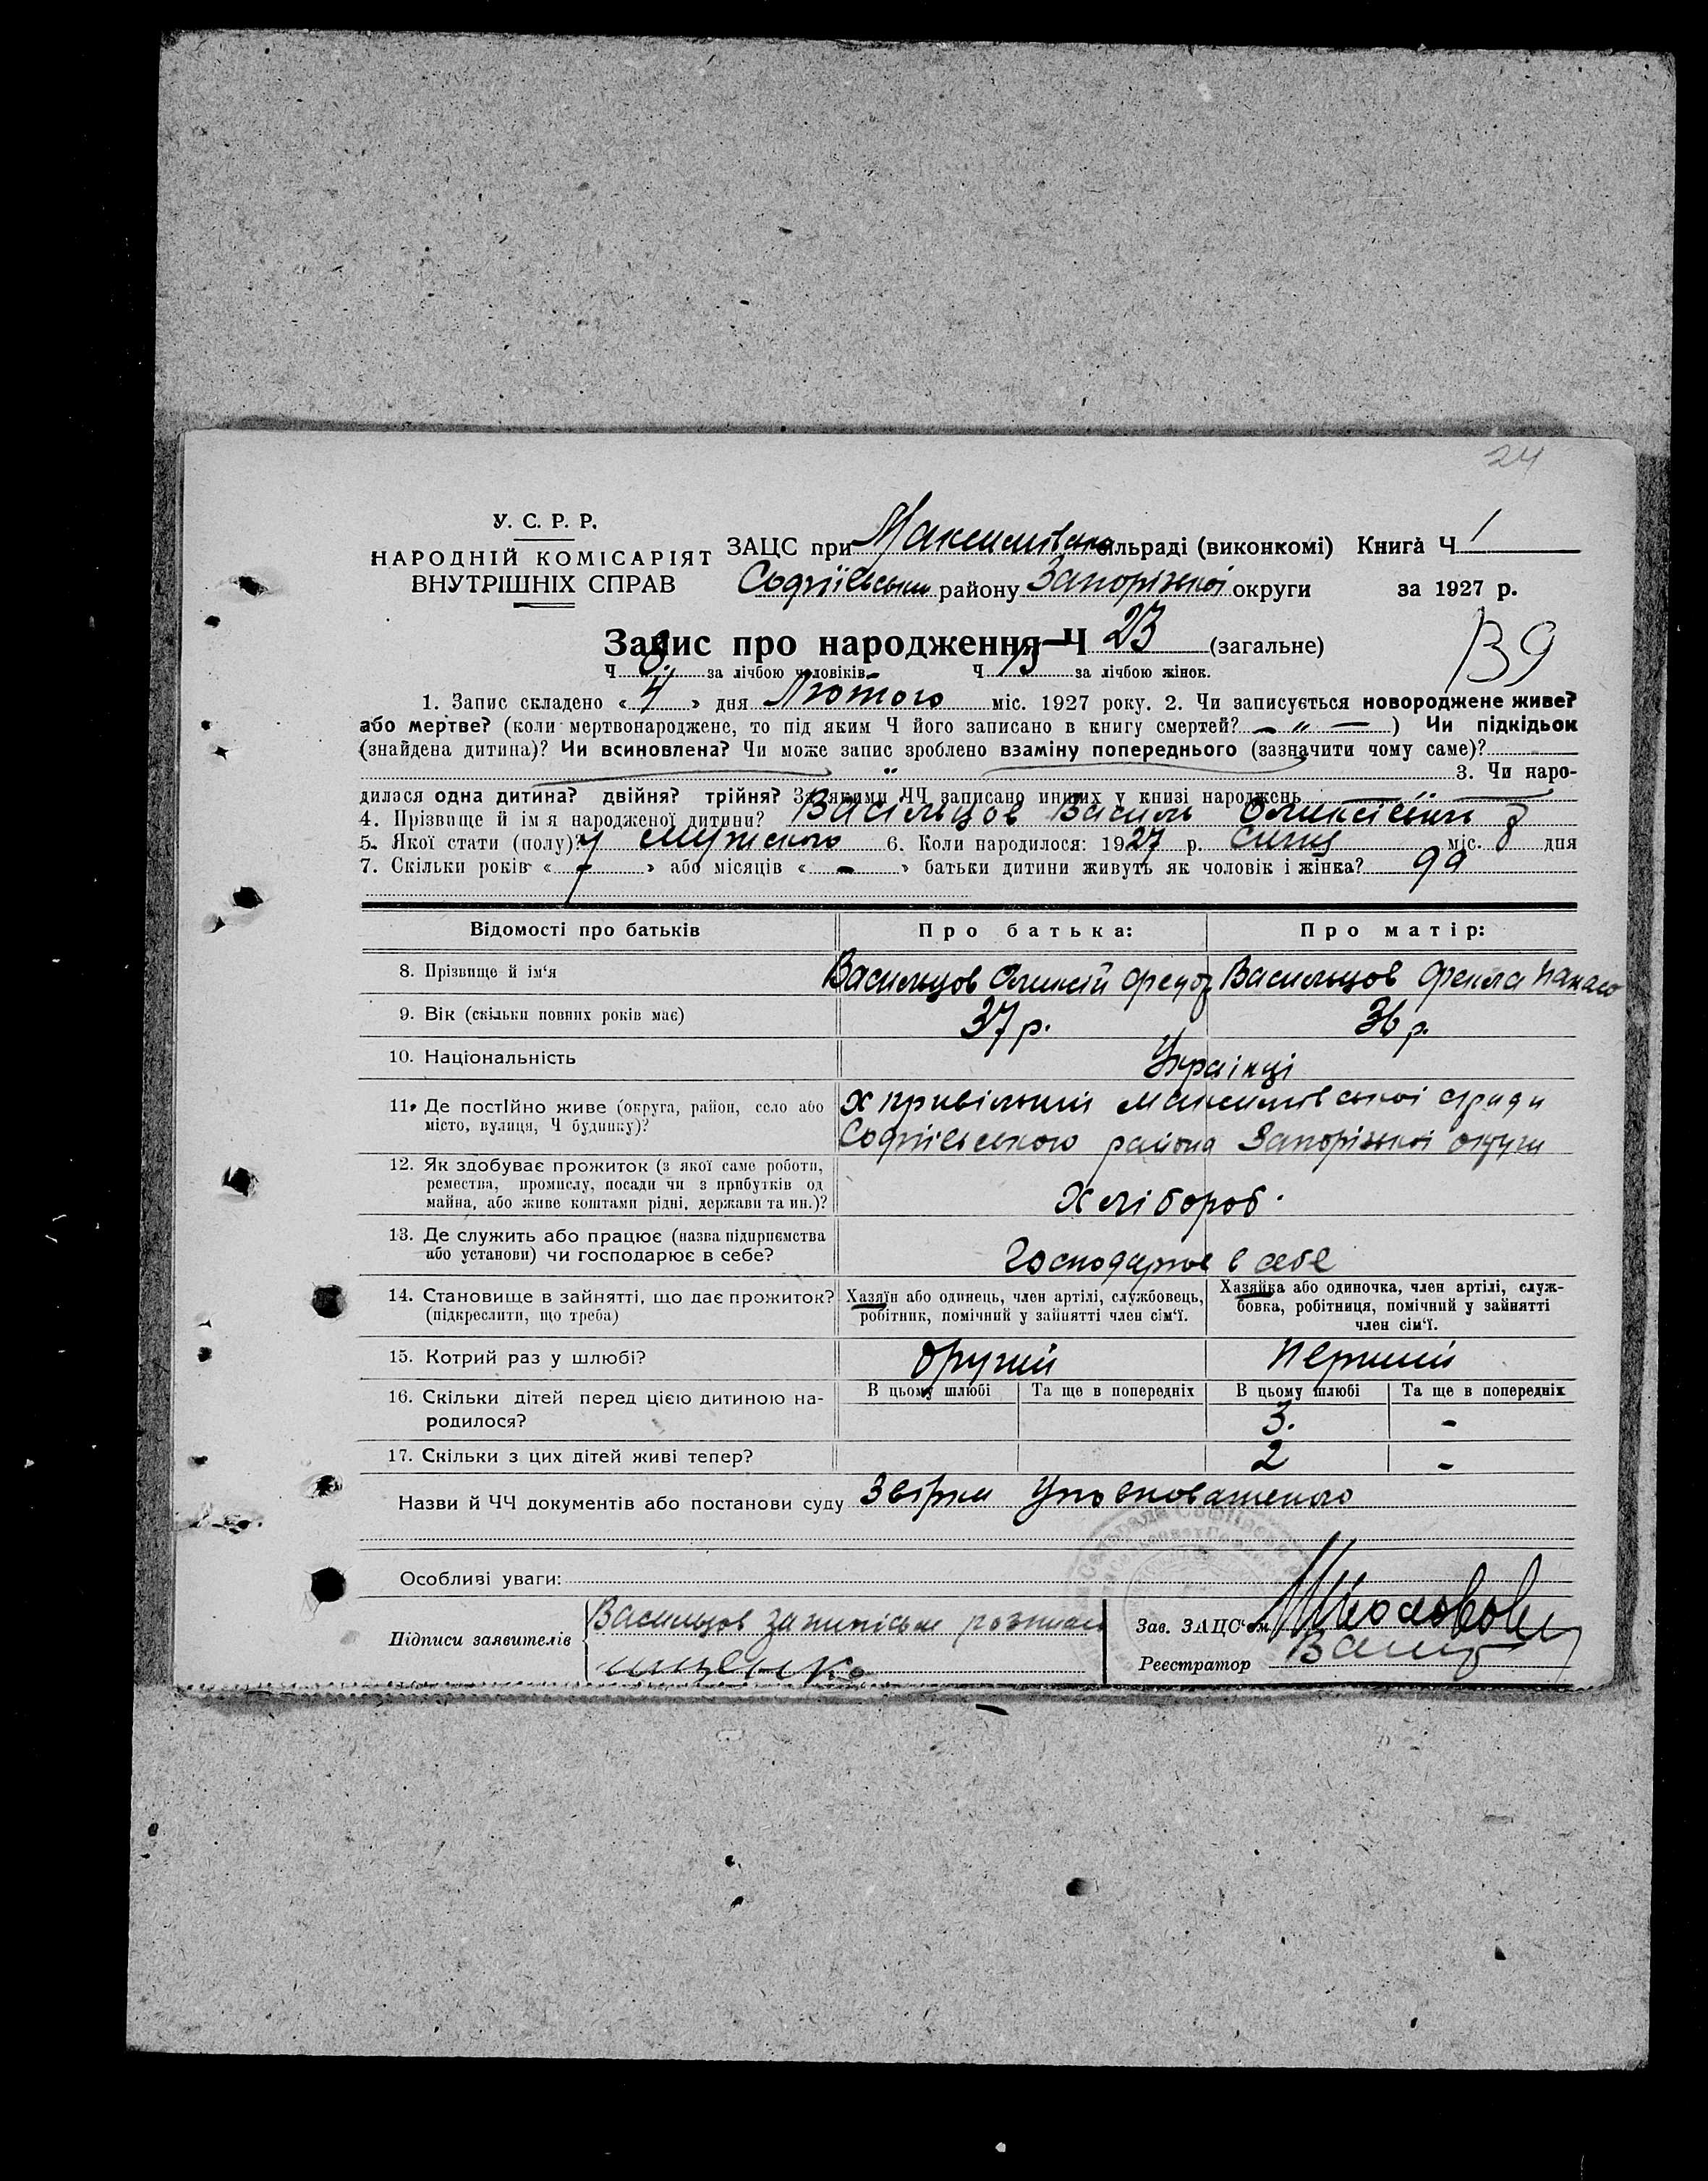 24
У. С. Р. Р.
НАРОДНІЙ КОМІСАРІЯТ
ВНУТРІШНІХ СПРАВ
ЗАЦС при Максимівськ сільраді (виконкомі) Книга Ч 1
Софіївськ району Запорізької округи за 1927 р.
Запис про народження—Ч 23 (загальне)
139
Ч 8 за лічбою чоловіків Ч 15 за лічбою жінок.
1. Запис складено « 4 » дня Лютого міс. 1927 року. 2. Чи записується новороджене живе?
або мертве? (коли мертвонароджене, то під яким Ч його записано в книгу смертей? — „ — ) Чи підкідьок
(знайдена дитина)? Чи всиновлена? Чи може запис зроблено взаміну попереднього (зазначити чому саме)?
„ 3. Чи наро-
дилася одна дитина? двійня? трійня? За якими ЧЧ записано инших у книзі народжень
4. Прізвище й ім'я народженої дитини? Васільцов Василь Олексієвич
5. Якої стати (полу)? мужского 6. Коли народилося: 1927 р. Січня міс. 8 дня
7. Скільки років « » або місяців « - » батьки дитини живуть як чоловік і жінка?
Відомості про батьків Про батька: Про матір:
8. Прізвище й ім'я Васильцов Олексій Федо Васильцов Фекла Панасо
9. Вік (скільки повних років має) 37 р. 36 р.
10. Національність Українці
11. Де постійно живе (округа, район, село або місто, вулиця, Ч будинку)? х Привільний Максимівської с/ради
Софіївського района Запорізької округи
12. Як здобуває прожиток (з якої саме роботи,
ремества, промислу, посади чи з прибутків од
майна, або живе коштами рідні, держави та ин.)? Хлібороб.
13. Де служить або працює (назва підприємства
або установи) чи господарює в себе? Господарює в себе
14. Становище в зайнятті, що дає прожиток?
(підкреслити, що треба)
Хазяїн або одинець, член артілі, службовець,
робітник, помічний у зайнятті член сім'ї.
Хазяйка або одиночка, член артілі, служ-
бовка, робітниця, помічний у зайнятті
член сім'ї.
15. Котрий раз у шлюбі? другий перший
В цьому шлюбі Та ще в попередніх В цьому шлюбі Та ще в попередніх
16. Скільки дітей перед цією дитиною на-
родилося? 3. -
17. Скільки з цих дітей живі тепер? 2 -
Назви й ЧЧ документів або постанови суду Звірка Уповноваженого
Особливі уваги:
Підписи заявителів Васильцов
Зав. ЗАЦС'ом
Реєстратор